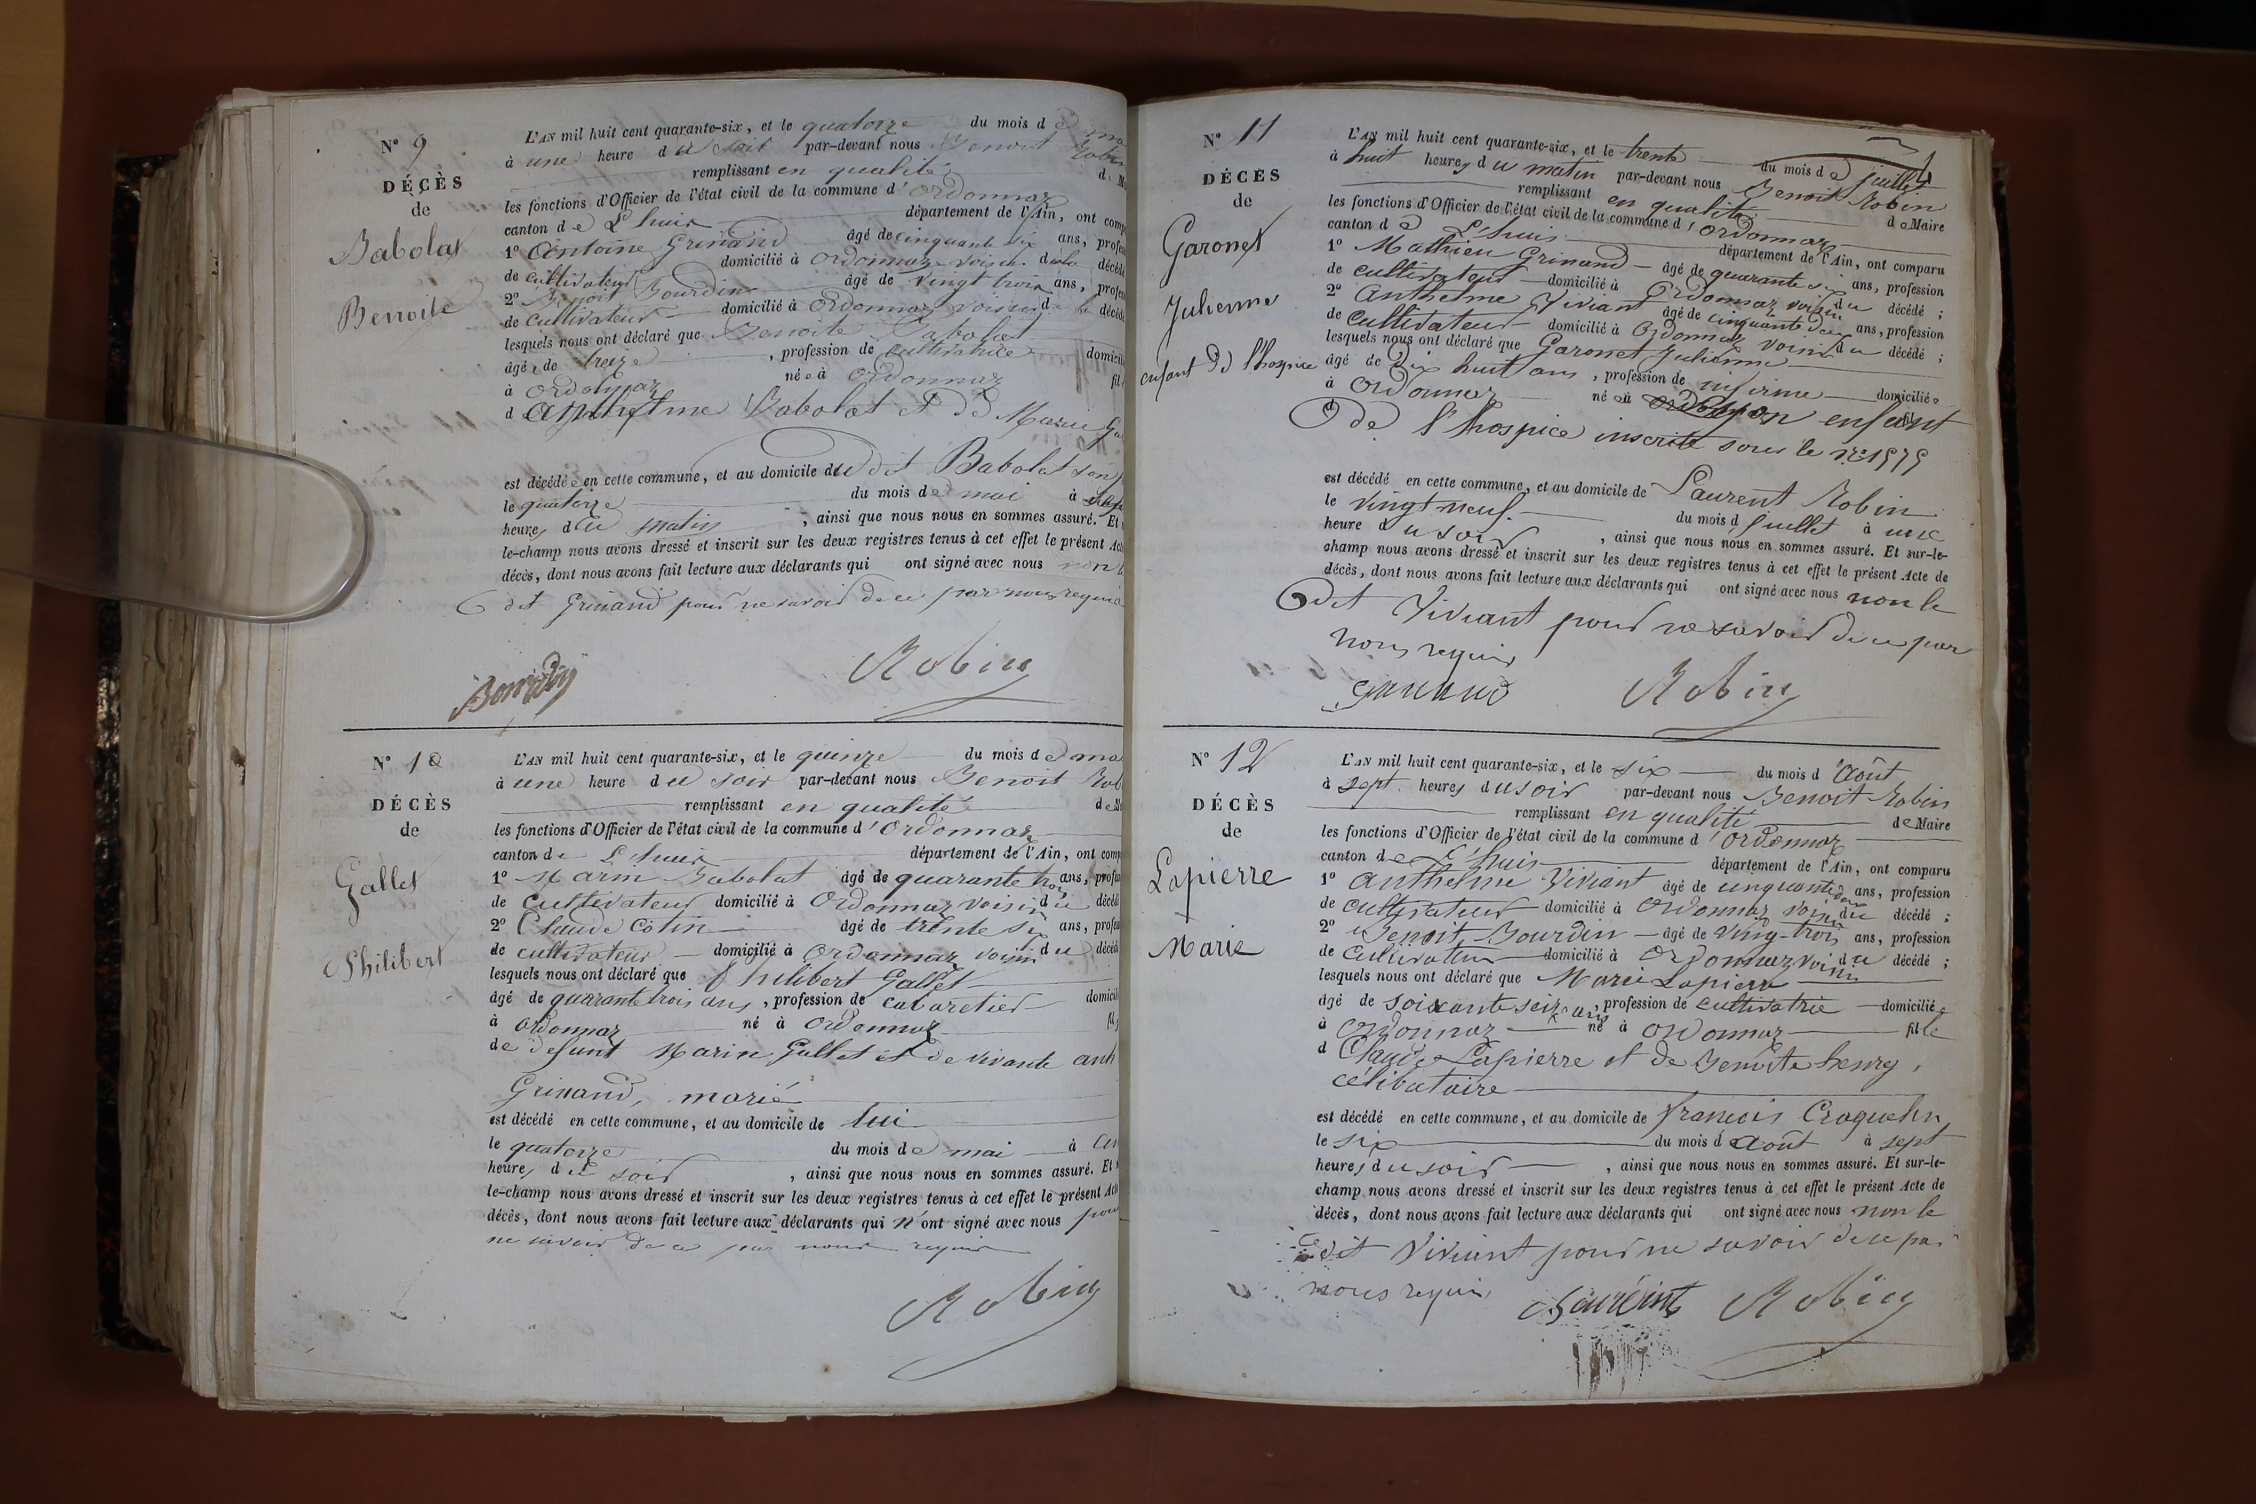 N° 9
DÉCÈS
de
Babolat
Benoite
L'AN mil huit cent quarante-six, et le quatorze du mois de
à une heure du soir par-devant nous Benoit Robin
remplissant en qualité de
les fonctions d'Officier de l'état civil de la commune d'ordonnaz
canton de L'huis département de l'Ain, ont comp
1° Antoine Grinand âgé de cinquante six ans, profes
de cultivateur domicilié à Ordonnaz voisin de la décéd
2° Benoit Bourdin âgé de vingt trois ans, profes
de cultivateur domicilié à Ordonnaz voisin de la décéd
lesquels nous ont déclaré que Benoite Babolat
âgée de treize , profession de cultivatrice domicili
à Ordonnaz née à Ordonnaz fil
d'Anthelme Babolat et de Marie
est décédée en cette commune, et au domicile du dit Babolat son
le quatorze du mois de mai à
heures du matin , ainsi que nous nous en sommes assuré. Et
le-champ nous avons dressé et inscrit sur les deux registres tenus à cet effet le présent Act
décès, dont nous avons fait lecture aux déclarants qui ont signé avec nous non
dit Grinand pour ne savoir de ce par nous requis
Bourdin Robin
N° 10
DÉCÈS
de
Gallet
Philibert
L'AN mil huit cent quarante-six, et le quinze du mois de mai
à une heure du soir par-devant nous Benoit Rob
remplissant en qualité de M
les fonctions d'Officier de l'état civil de la commune d'ordonnaz
canton de L'huis département de l'Ain, ont comp
1° Marin Babolat âgé de quarante trois ans, profes
de cultivateur domicilié à Ordonnaz voisin du décéd
2° Claude Cotin âgé de trente six ans, profes
de cultivateur domicilié à Ordonnaz voisin du décéd
lesquels nous ont déclaré que Philibert Gallet
âgé de quarante trois ans, profession de cabaretier domicili
à Ordonnaz né à Ordonnaz fils
de défunt Marin Gallet et de vivante anth
Grinand, marié
est décédé en cette commune, et au domicile de lui
le quatorze du mois de mai à
heures du soir , ainsi que nous nous en sommes assuré. Et
le-champ nous avons dressé et inscrit sur les deux registres tenus à cet effet le présent Acte
décès, dont nous avons fait lecture aux déclarants qui n'ont signé avec nous pour
ne savoir de ce par nous requis
Robin
N° 11
DÉCÈS
de
Garonet
Julienne
enfant de l'hospice
L'AN mil huit cent quarante-six, et le trente du mois de juillet
à huit heures du matin par-devant nous Benoit Robin
remplissant en qualité de Maire
les fonctions d'Officier de l'état civil de la commune d'ordonnaz
canton de L'huis département de l'Ain, ont comparu
1° Mathieu Grinand âgé de quarante six ans, profession
de cultivateur domicilié à Ordonnaz voisin du décédé ;
2° Anthelme Viviant âgé de cinquante deux ans, profession
de cultivateur domicilié à Ordonnaz voisin du décédé ;
lesquels nous ont déclaré que Garonet Julienne
âgé de dix huit ans , profession de infirme domiciliée
à Ordonnaz né à enfant
de l'hospice inscrite sous le n°
est décédé en cette commune, et au domicile de Laurent Robin
le vingt neuf du mois d Juillet à une
heure du soir , ainsi que nous nous en sommes assuré. Et sur-le-
champ nous avons dressé et inscrit sur les deux registres tenus à cet effet le présent Acte de
décès, dont nous avons fait lecture aux déclarants qui ont signé avec nous non le
dit Viviant pour ne savoir de ce par
nous requis
Grinand Robin
N° 12
DÉCÈS
de
Lapierre
Marie
L'AN mil huit cent quarante-six, et le six du mois d'Août
à sept heures du soir par-devant nous Benoit Robin
remplissant en qualité de Maire
les fonctions d'Officier de l'état civil de la commune d'ordonnaz
canton de L'huis département de l'Ain, ont comparu
1° Anthelme Viviant âgé de cinquante deux ans, profession
de cultivateur domicilié à Ordonnaz voisin du décédé ;
2° Benoit Bourdin âgé de ving-trois ans, profession
de Cultivateur domicilié à Ordonnaz voisin du décédé ;
lesquels nous ont déclaré que Marie Lapierre
âgé de soixante seize ans, profession de cultivatrice domiciliée
à Ordonnaz né à Ordonnaz fille
d Claude Lapierre et de Benoite henry,
célibataire
est décédé en cette commune, et au domicile de francois Croquelin
le six du mois d'Août à sept
heures du soir , ainsi que nous nous en sommes assuré. Et sur-le-
champ nous avons dressé et inscrit sur les deux registres tenus à cet effet le présent Acte de
décès, dont nous avons fait lecture aux déclarants qui ont signé avec nous non le
dit Viviant pour ne savoir de ce par
nous requis
Robin